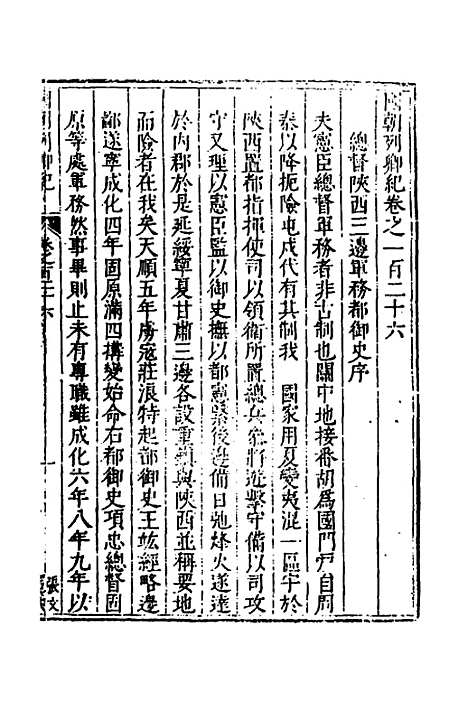 國朝列卿紀卷之一百二十六
總督陝西三邊軍務都御史序
夫憲臣總督軍務者非古制也關中地接番胡為國門戸自周
秦以降扼險屯戍代有其制我 國家用夏變夷混一區宇於
陝西置都指揮使司以領衛所置總兵叅將遊擊守備以司攻
守又理以憲臣監以御史撫以都憲 後邊備日弛烽火遂達
於内郡於是延綏寧夏甘肅三邊各設重鎮與陝西並稱要地
而險者在我矣天順五年虜寇莊浪特起都御史王竑經略邊
鄙遂寧成化四年固原滿四搆變始命右都御史項忠總督固
原等處軍務然事畢則止未有專職雖成化六年八年九年以
國朝列卿紀
卷之一百二十六
一